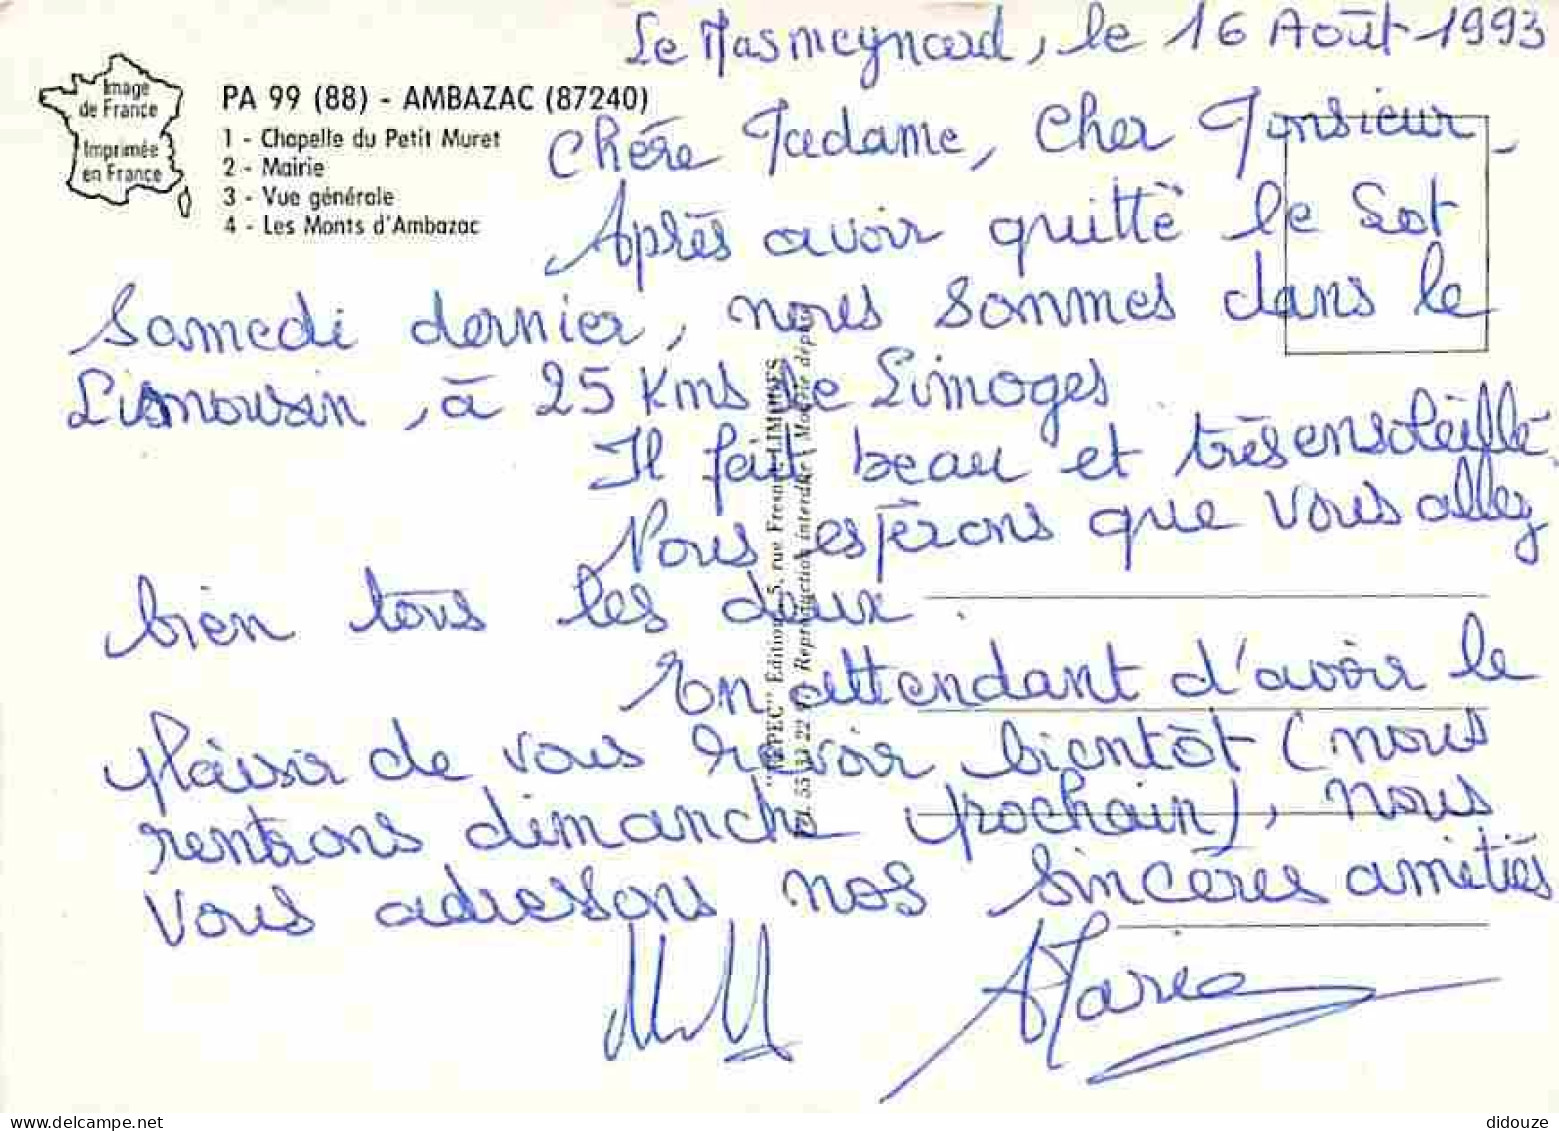 Le Masmeynard, le 16 Août 1993
Image
de France
Imprimée
en France
PA 99 (88) - AMBAZAC (87240)
1 - Chapelle du Petit Muret
2 - Mairie
3 - Vue générale
4 - Les Monts d'Ambazac
Chère Madame, Cher Monsieur,
Après avoir quitté le Lot
Samedi dernier, nous sommes dans le
Limousin, à 25 Kms de Limoges
Il fait beau et très ensoleillé.
Nous espérons que vous allez
bien tous les deux.
En attendant d'avoir le
plaisir de vous revoir bientôt (nous
rentrons dimanche prochain), nous
vous adressons nos sincères amitiés
Maria
Editions 5, rue LIMOGES
Reproduction interdite
didouze